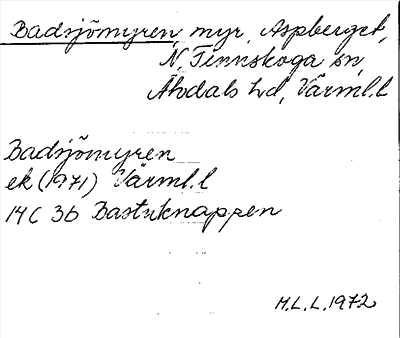 Badsjömyren, myr, Aspberget,
N. Finnskoga sn,
Älvdals hd, Värml.l
Badsjömyren
ek (1971) Värml.l
14C 3b Bastuknappen
M.L.L. 1972